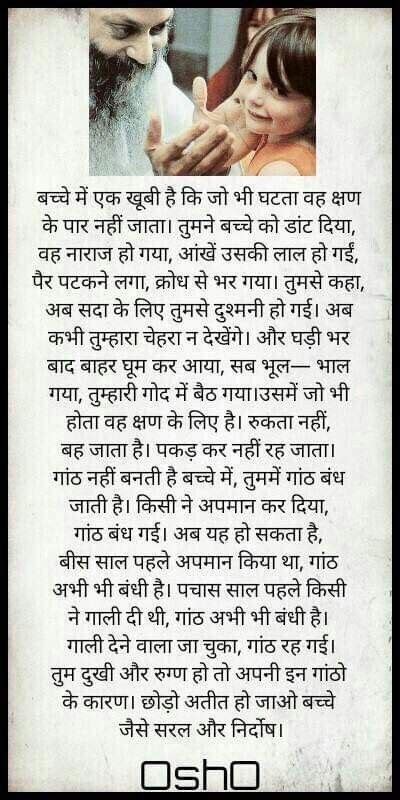 बच्चे में एक खूबी है कि जो भी घटता वह क्षण
के पार नहीं जाता। तुमने बच्चे को डांट दिया,
वह नाराज हो गया, आंखें उसकी लाल हो गईं,
पैर पटकने लगा, क्रोध से भर गया। तुमसे कहा,
अब सदा के लिए तुमसे दुश्मनी हो गई। अब
कभी तुम्हारा चेहरा न देखेंगे। और घड़ी भर
बाद बाहर घूम कर आया, सब भूल— भाल
गया, तुम्हारी गोद में बैठ गया।उसमें जो भी
होता वह क्षण के लिए है। रुकता नहीं,
बह जाता है। पकड़ कर नहीं रह जाता।
गांठ नहीं बनती है बच्चे में, तुममें गांठ बंध
जाती है। किसी ने अपमान कर दिया,
गांठ बंध गई। अब यह हो सकता है,
बीस साल पहले अपमान किया था, गांठ
अभी भी बंधी है। पचास साल पहले किसी
ने गाली दी थी, गांठ अभी भी बंधी है।
गाली देने वाला जा चुका, गांठ रह गई।
तुम दुखी और रुग्ण हो तो अपनी इन गांठो
के कारण। छोड़ो अतीत हो जाओ बच्चे
जैसे सरल और निर्दोष।
OSHO